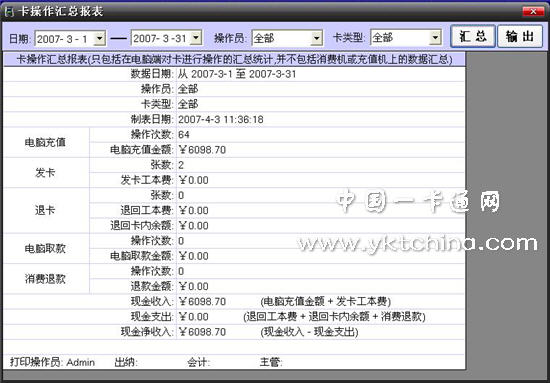 卡操作汇总报表
日期: 2007- 3 - 1 — 2007- 3 -31 操作员: 全部 卡类型: 全部 汇 总 输 出
卡操作汇总报表(只包括在电脑端对卡进行操作的汇总统计,并不包括消费机或充值机上的数据汇总)
数据日期: 从 2007-3-1 至 2007-3-31
操作员: 全部
卡类型: 全部
制表日期: 2007-4-3 11:36:18
电脑充值
操作次数: 64
电脑充值金额: ¥6098.70
发卡
张数: 2
发卡工本费: ¥0.00
退卡
张数: 0
退回工本费: ¥0.00
退回卡内余额: ¥0.00
电脑取款
操作次数: 0
电脑取款金额: ¥0.00
消费退款
操作次数: 0
退款金额: ¥0.00
现金收入: ¥6098.70 (电脑充值金额 + 发卡工本费)
现金支出: ¥0.00 (退回工本费 + 退回卡内余额 + 消费退款)
现金净收入: ¥6098.70 (现金收入 - 现金支出)
打印操作员: Admin 出纳: 会计: 主管:
中国一卡通网
www.yktchina.com